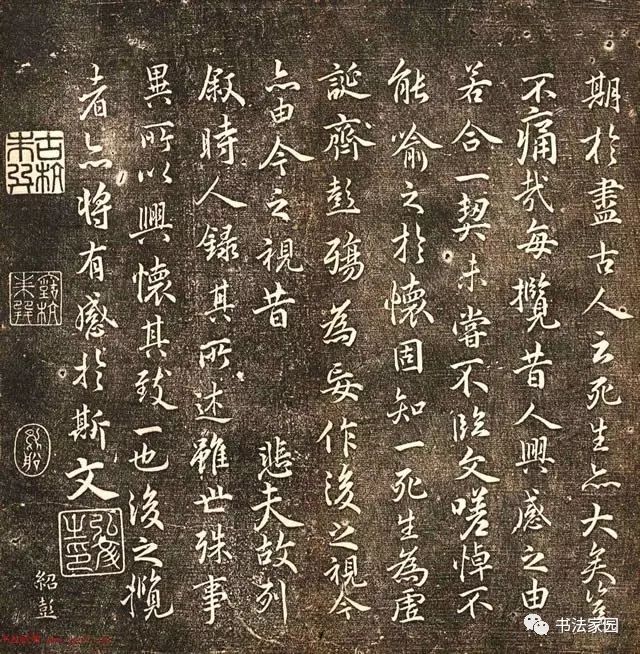 期於盡古人云死生亦大矣豈
不痛哉每攬昔人興感之由
若合一契未嘗不臨文嗟悼不
能喻之於懷固知一死生為虛
誕齊彭殤為妄作後之視今
亦由今之視昔 悲夫故列
敘時人錄其所述雖世殊事
異所以興懷其致一也後之攬
者亦將有感於斯文
紹彭
书法家园